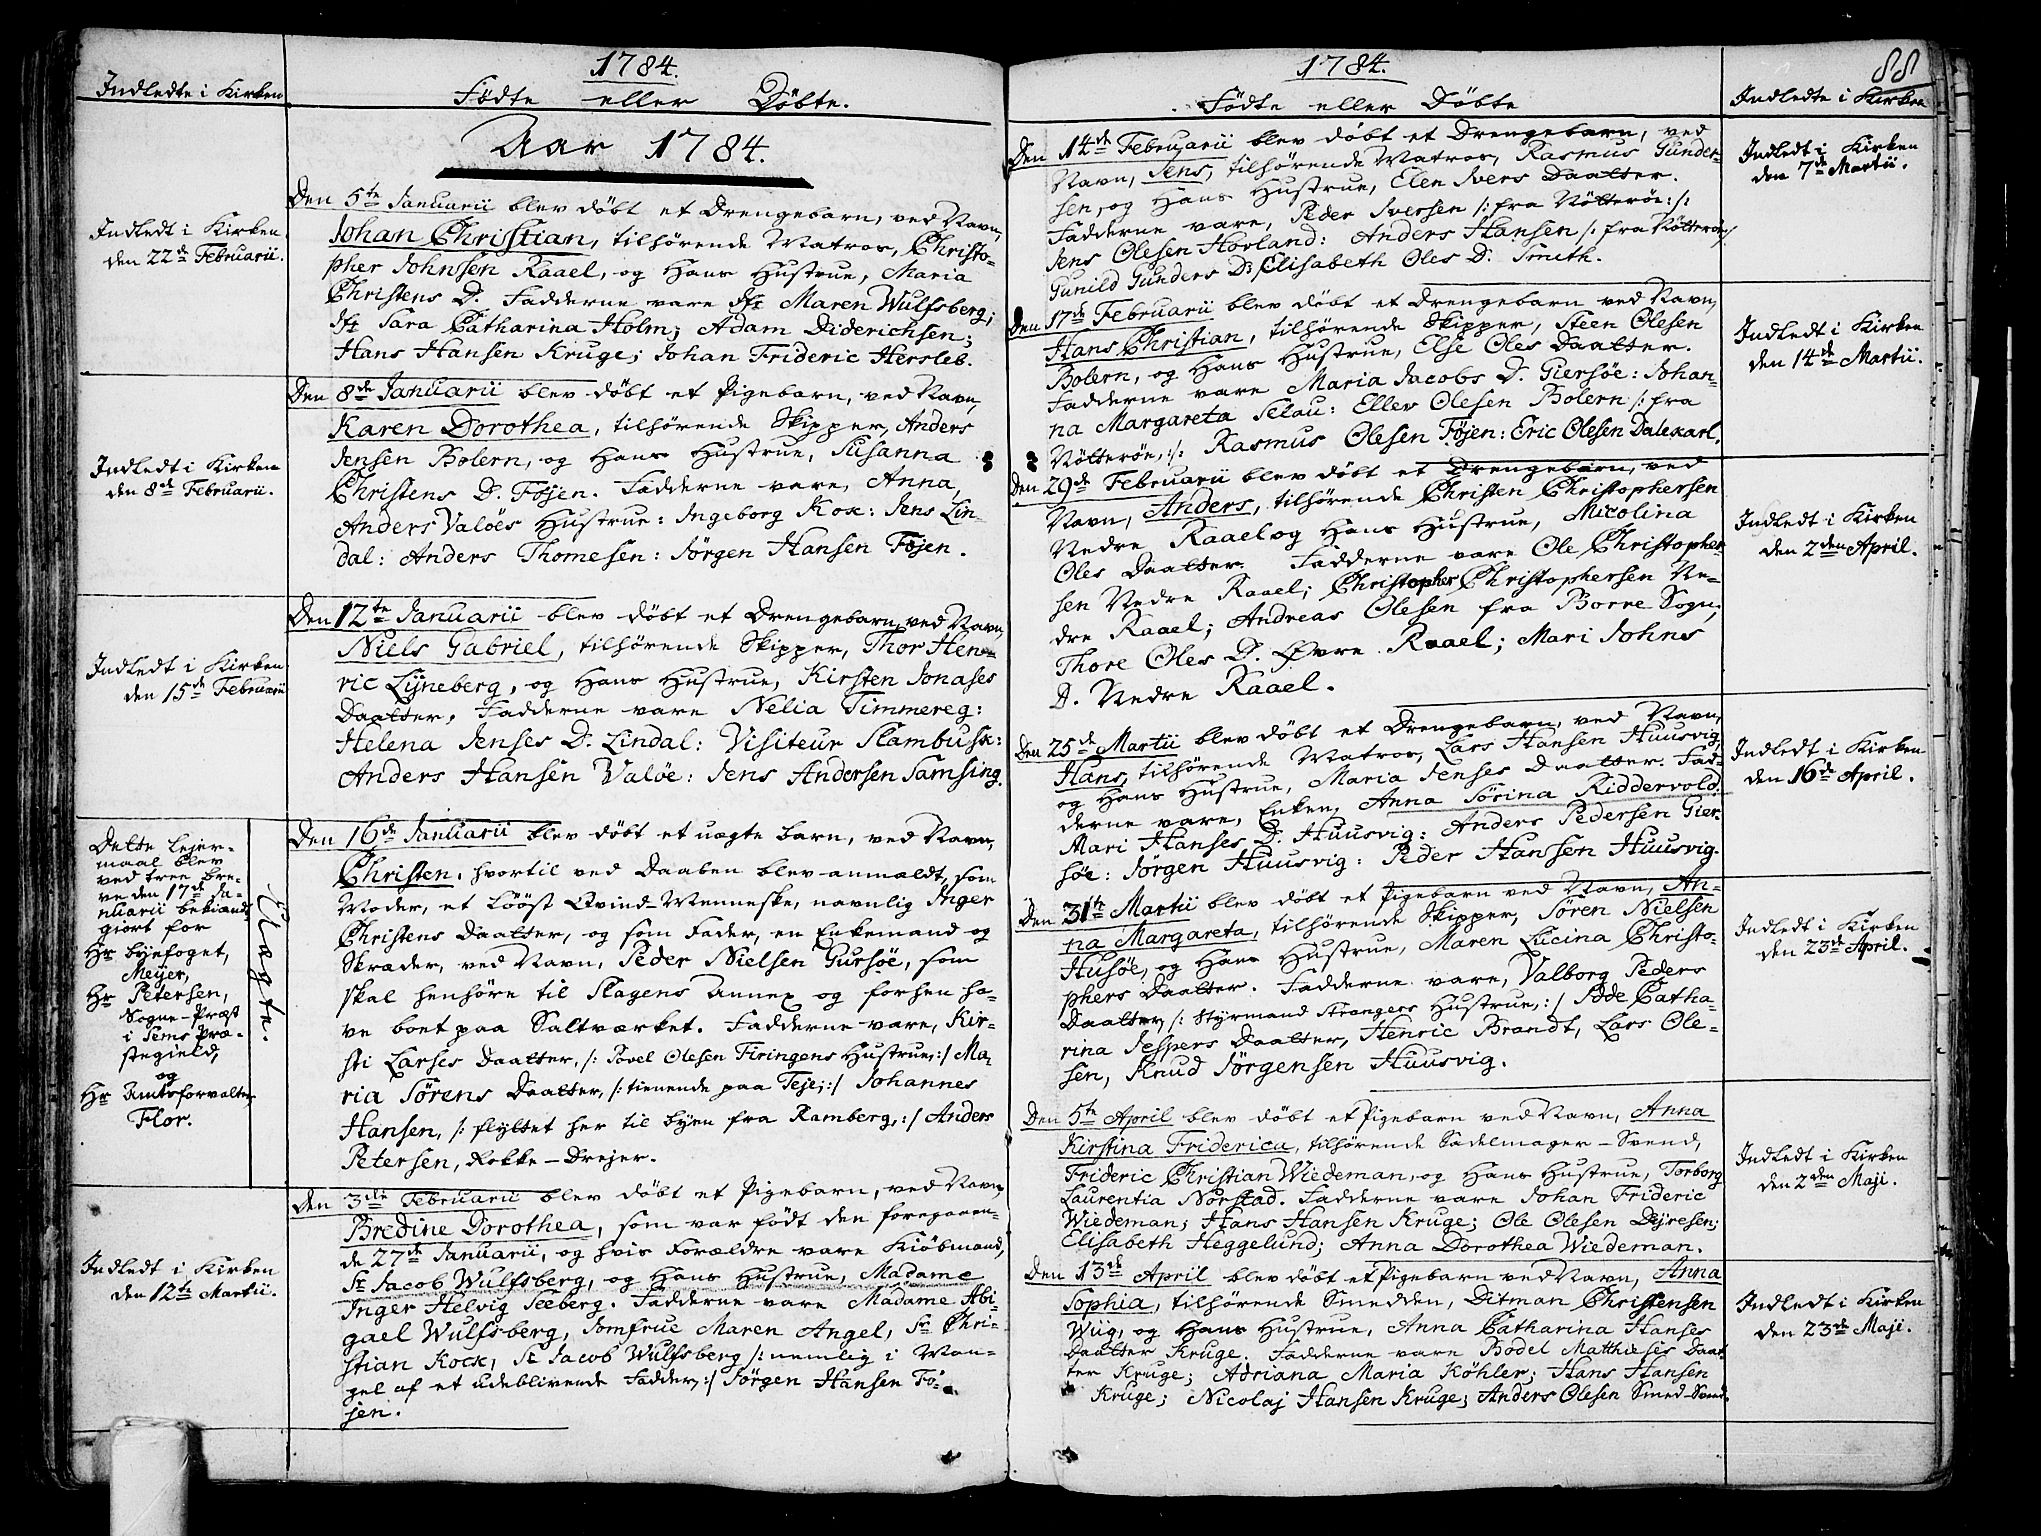 1784.
Indledte i Kirken
Födte eller Döbte.
Aar 1784.
Indledt i Kirken
den 22de Februarii.
Den 5te Januarii blev döbt et Drengebarn, ved Navn,
Johan Christian, tilhörende Matros, Christo-
pher Johnsen Raael, og Hans Hustrue, Maria
Christens D. Fadderne vare Jfr Maren Wulfsberg;
Jfr Sara Catharina Holm; Adam Diderichsen;
Hans Hansen Kruge; Johan Frideric Hersleb.
Indledt i Kirken
den 8de Februarii.
Den 8de Januarii blev döbt et Pigebarn, ved Navn,
Karen Dorothea, tilhörende Skipper, Anders
Jensen Bolern, og Hans Hustrue, Susanna
Christens D. Föjen. Fadderne vare, Anna,
Anders Valöes Hustrue: Ingeborg Kox: Jens Lin-
dal: Anders Thomesen: Jörgen Hansen Föjen.
Indledt i Kirken
den 15de Februarii
Den 12te Januarii blev döbt et Drengebarn, ved Navn,
Niels Gabriel, tilhörende Skipper, Thor Hen-
ric Lÿneberg, og Hans Hustrue, Kirsten Jonases
Daatter. Fadderne vare Nelia Timmereg:
Helena Jenses D. Lindal: Visiteur Slambusk:
Anders Hansen Valöe: Jens Andersen Samsing.
Dette Lejer-
maal blev
ved tree bre-
ve den 17de Ja-
nuarii bekiendt
giort for
Hr byefoget,
Meyer,
Hr Petersen,
Sogne-Præst
i Sems Præ-
stegield,
og
Hr Amtsforvalter
Flor.
Uægte.
Den 16de Januarii blev döbt et uægte barn, ved Navn,
Christen, hvortil ved Daaben blev anmældt, som
Moder, et löös Qvinde Menneske, navnlig Inger
Christens Daatter, og som Fader, en Enkemand og
Skræder, ved Navn, Peder Nielsen Gursöe, som
skal henhöre til Slagens Annex og forhen ha-
ve boet paa Saltværket. Fadderne vare, Kir-
sti Larses Daatter, /: Povel Olesen Firingens Hustrue, :/ Ma-
ria Sörens Daatter, /: tienende paa Teje; :/ Johannes
Hansen, /: flyttet her til byen fra Ramberg, :/ Anders
Petersen, Rokke-Drejer.
Indledt i Kirken
den 12te Martii.
Den 3die Februarii blev döbt et Pigebarn, ved Navn,
Bredine Dorothea, som var födt den foregaaen-
de 27de Januarii, og hvis Forældre vare Kiöbmand,
Sr Jacob Wulfsberg, og Hans Hustrue, Madame
Inger Helvig Seeberg. Fadderne vare Madame Abi-
gael Wulfsberg, Jomfrue Maren Angel, Sr Chri-
stian Kock, Sr Jacob Wulfsberg /: nemlig i Man-
gel af et udeblivende Fadder, :/ Jörgen Hansen Fö-
jen.
1784.
88
Födte eller Döbte
Indledte i Kirken
Den 14de Februarii blev döbt et Drengebarn, ved
Navn, Jens, tilhörende Matros, Rasmus Gunder-
sen, og Hans Hustrue, Elen Ivers Daatter.
Fadderne vare, Peder Iversen /: fra Nötteröe: /:
Jens Olesen Hovland: Anders Hansen /: fra Nötteröe /
Gunild Gunders D: Elisabeth Oles D. Smith.
Indledt i Kirken
den 7de Martii.
Den 17de Februarii blev döbt et Drengebarn ved Navn,
Hans Christian, tilhörende Skipper, Steen Olesen
Bolern, og Hans Hustrue, Else Oles Daatter.
Fadderne vare Maria Jacobs D. Giersöe: Johan-
na Margareta Selau: Eller Olesen Bolern /: fra
Nötteröe, :/: Rasmus Olesen Föjen: Eric Olesen Dalekarl.
Indledt i Kirken
den 14de Martii.
Den 29de Februarii blev döbt et Drengebarn, ved
Navn, Anders, tilhörende Christen Christophersen
Nedre Raael og Hans Hustrue, Nicolina
Oles Daatter. Fadderne vare Ole Christopher-
sen Nedre Raael; Christopher Christophersen Ne-
dre Raael; Andreas Olesen fra Borre Sogn;
Thore Oles D. Øvre Raael; Mari Johns
D. Nedre Raael.
Indledt i Kirken
den 2den April.
Den 25de Martii blev döbt et Drengebarn, ved Navn,
Hans, tilhörende Matros, Lars Hansen Huusvig,
og Hans Hustrue, Maria Jenses Daatter. Fad-
derne vare, Enken, Anna Sörina Riddervold.
Mari Hanses D. Huusvig: Anders Pedersen Gier-
söe: Jörgen Huusvig: Peder Hansen Huusvig.
Indledt i Kirken
den 16de April.
Den 31te Martii blev döbt et Pigebarn ved Navn, An-
na Margareta, tilhörende Skipper, Sören Nielsen
Husöe, og Hans Hustrue, Maren Lucina Christo-
phers Daatter. Fadderne vare, Valborg Peders
Daatter, /: Styrmand Strangers Hustrue, :/ Söde Catha-
rina Jespers Daatter, Henric Brandt, Lars Ole-
sen, Knud Jörgensen Huusvig.
Indledt i Kirken
den 23de April.
Den 5te April blev döbt et Pigebarn ved Navn, Anna
Kirstina Friderica, tilhörende Sadelmager-Svend,
Frideric Christian Wiedeman, og Hans Hustrue, Torborg
Laurentia Norstad. Fadderne vare Johan Frideric
Wiedeman; Hans Hansen Kruge; Ole Olesen Dejresen;
Elisabeth Heggelund; Anna Dorothea Wiedeman.
Indledt i Kirken
den 2den Maji.
Den 13de April blev döbt et Pigebarn ved Navn, Anna
Sophia, tilhörende Smedden, Ditman Christensen
Wiig, og Hans Hustrue, Anna Catharina Hanses
Daatter Kruge. Fadderne vare Bodel Matthieses Daat-
ter Kruge; Adriana Maria Köhler; Hans Hansen
Kruge; Nicolaj Hansen Kruge; Anders Olesen Smed-Svend.
Indledt i Kirken
den 23de Maji.